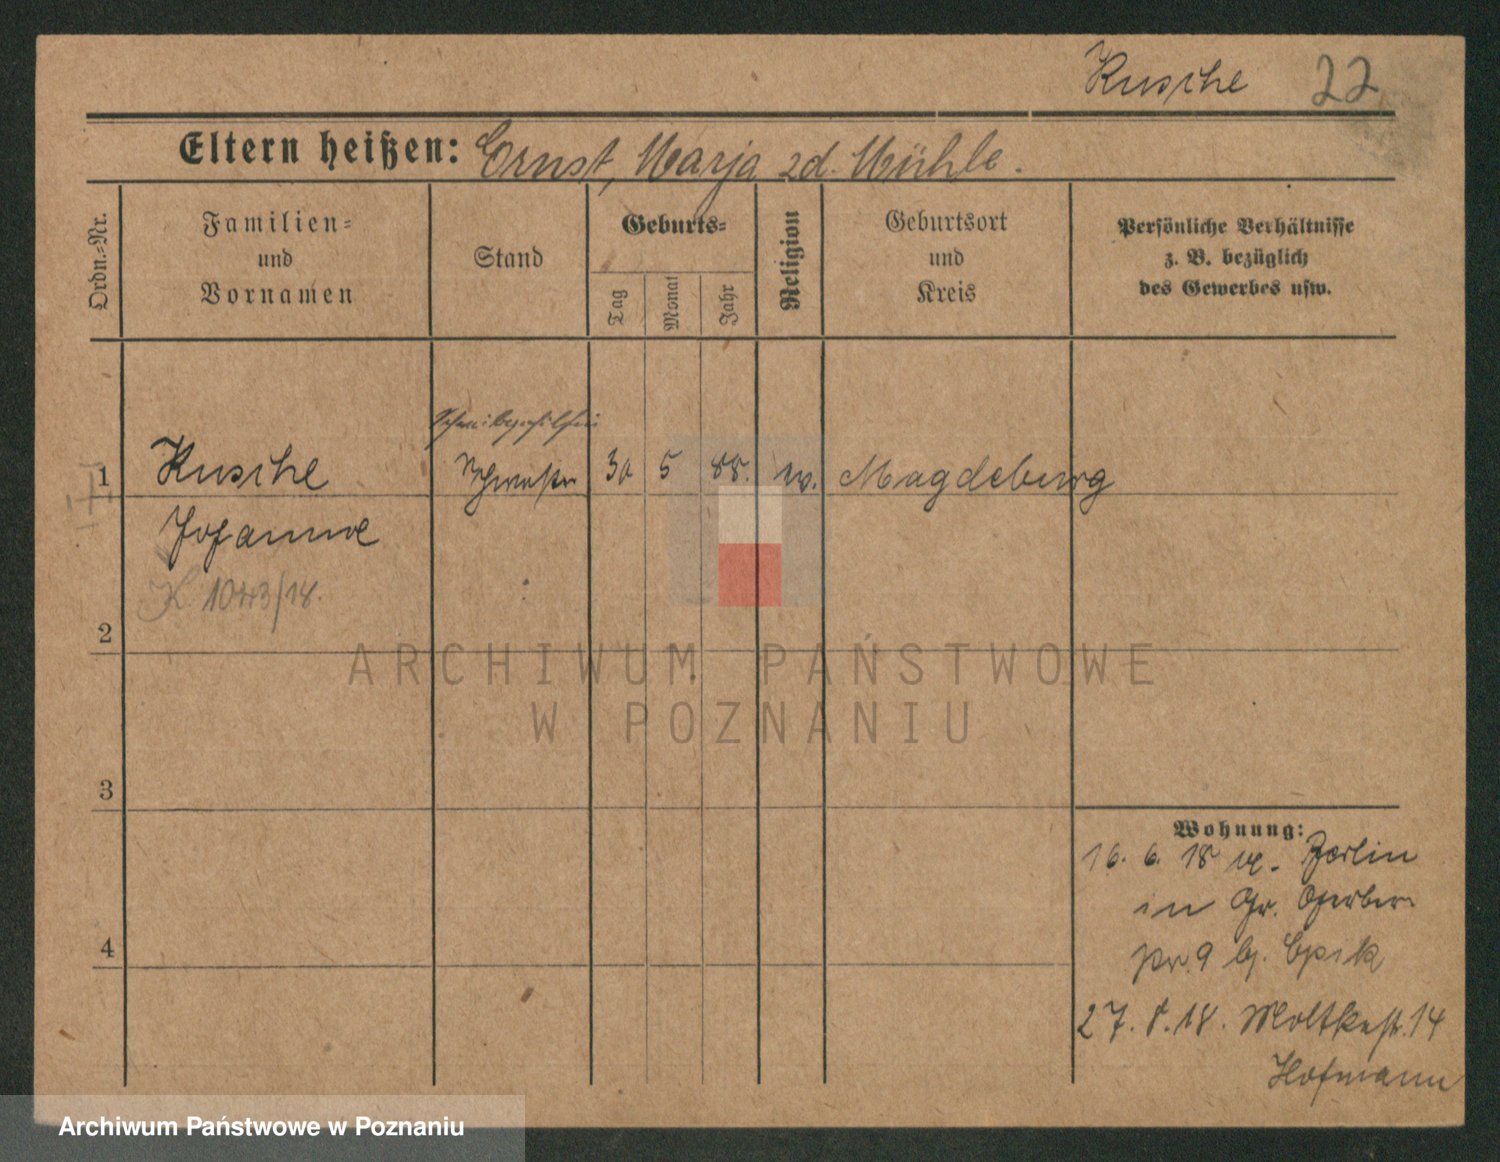 Kusche 22
Eltern heißen: Ernst, Marja zd. Mühle.
Ordn.-Nr.
Familien-
und
Vornamen
Stand
Geburts-
Tag
Monat
Jahr
Religion
Geburtsort
und
Kreis
Persönliche Verhältnisse
z. B. bezüglich
des Gewerbes usw.
1 Kusche 30 5 88. Magdeburg
Johanne
K. 1043/18.
2
3
4
Wohnung:
16. 6. 18 Berlin
in Gr. Gerber
9 b.
27. 8. 18. Moltkestr. 14
Hofmann
ARCHIWUM PAŃSTWOWE
W POZNANIU
Archiwum Państwowe w Poznaniu